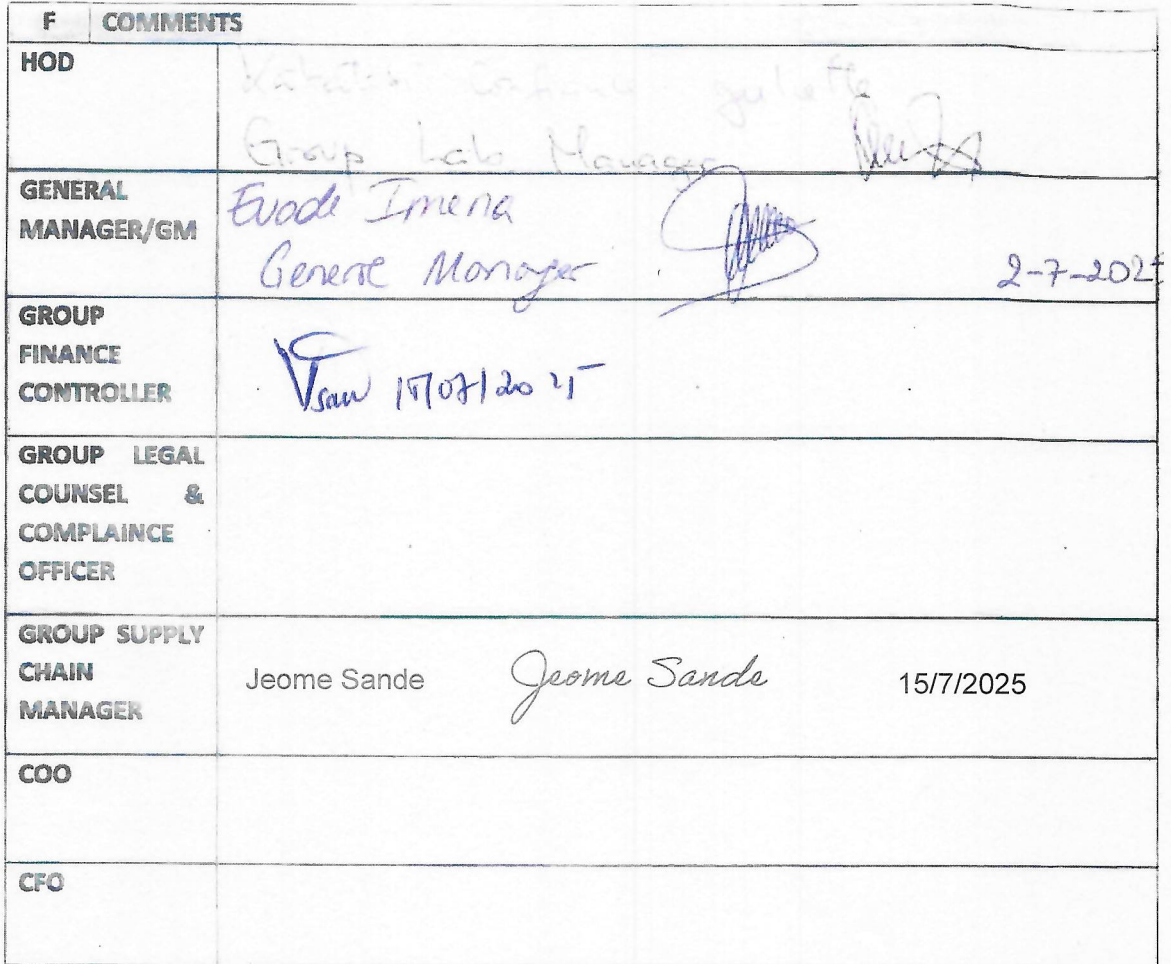 F COMMENTS
HOD
Group Lab Manager
GENERAL
MANAGER/GM
Evode Imena
General Manager
2-7-202
GROUP
FINANCE
CONTROLLER
15/07/2025
GROUP LEGAL
COUNSEL &
COMPLAINCE
OFFICER
GROUP SUPPLY
CHAIN
MANAGER
Jeome Sande Jeome Sande 15/7/2025
COO
CFO